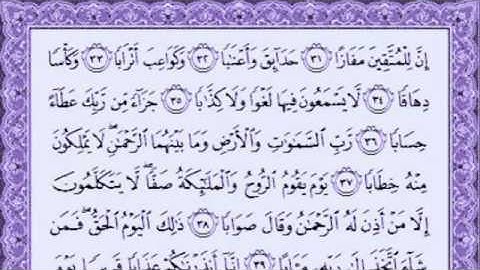 إِنَّ لِلْمُتَّقِينَ مَفَازًا ٣١ حَدَآئِقَ وَأَعْنَٰبًا ٣٢ وَكَوَاعِبَ أَتْرَابًا ٣٣ وَكَأْسًا
دِهَاقًا ٣٤ لَّا يَسْمَعُونَ فِيهَا لَغْوًا وَلَا كِذَّٰبًا ٣٥ جَزَآءً مِّن رَّبِّكَ عَطَآءً
حِسَابًا ٣٦ رَّبِّ السَّمَٰوَٰتِ وَالْأَرْضِ وَمَا بَيْنَهُمَا الرَّحْمَٰنِ ۖ لَا يَمْلِكُونَ
مِنْهُ خِطَابًا ٣٧ يَوْمَ يَقُومُ الرُّوحُ وَالْمَلَٰٓئِكَةُ صَفًّا ۖ لَّا يَتَكَلَّمُونَ
إِلَّا مَنْ أَذِنَ لَهُ الرَّحْمَٰنُ وَقَالَ صَوَابًا ٣٨ ذَٰلِكَ الْيَوْمُ الْحَقُّ ۖ فَمَن
شَآءَ اتَّخَذَ إِلَىٰ رَبِّهِ مَـَٔابًا ٣٩ إِنَّآ أَنذَرْنَٰكُمْ عَذَابًا قَرِيبًا يَوْمَ